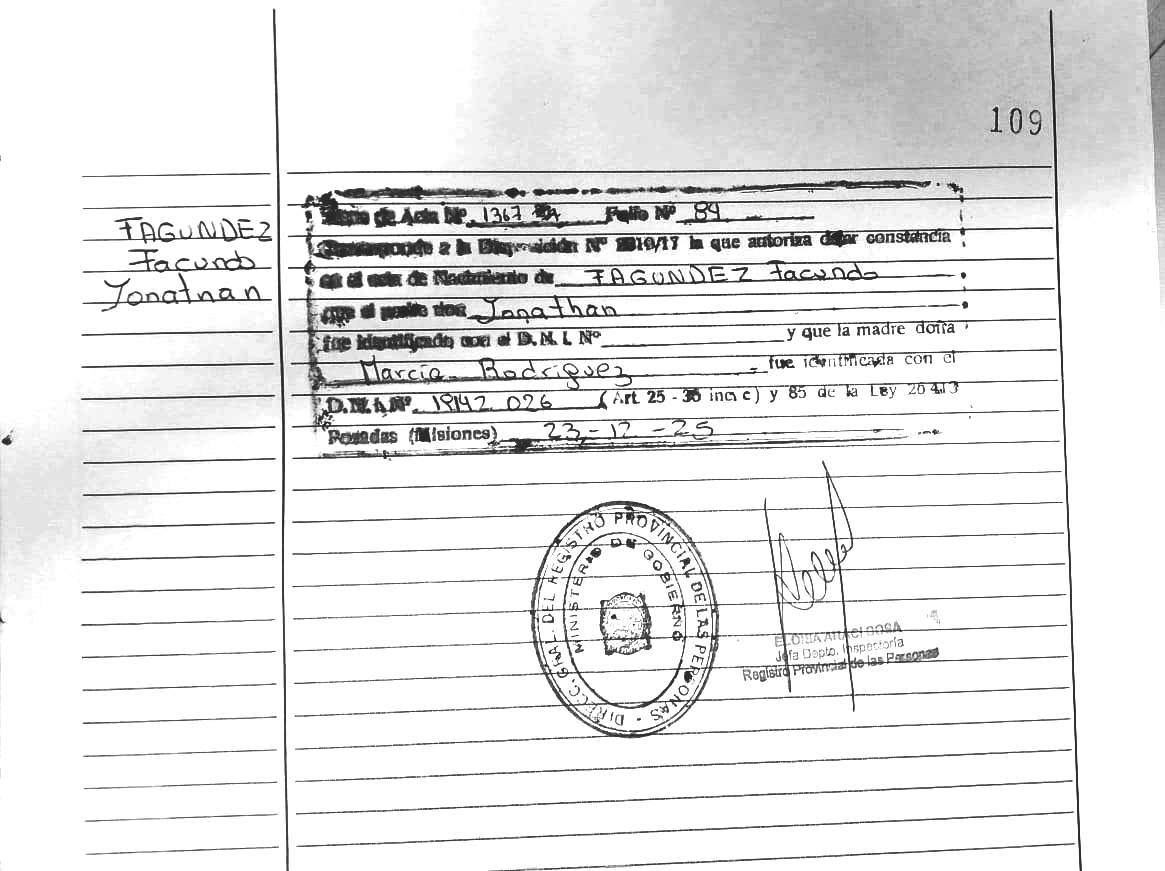 109
FAGUNDEZ
Facundo
Jonathan
de Acta Nº 1367 Folio Nº 84
Corresponde a la Disposición Nº /17 la que autoriza dejar constancia
en el acta de Nacimiento de FAGUNDEZ Facundo
que el padre don Jonathan
fue identificado con el D. N. I. Nº y que la madre doña
Marcia Rodriguez fue identificada con el
D.N.I. Nº 19142.026 (Art. 25 - 36 inc. c) y 85 de la Ley 26413
Posadas (Misiones) 23-12-25
DIRECC. GRAL. DEL REGISTRO PROVINCIAL DE LAS PERSONAS -
MINISTERIO DE GOBIERNO
SOSA
Jefa Depto. Inspectoría
Registro Provincial de las Personas